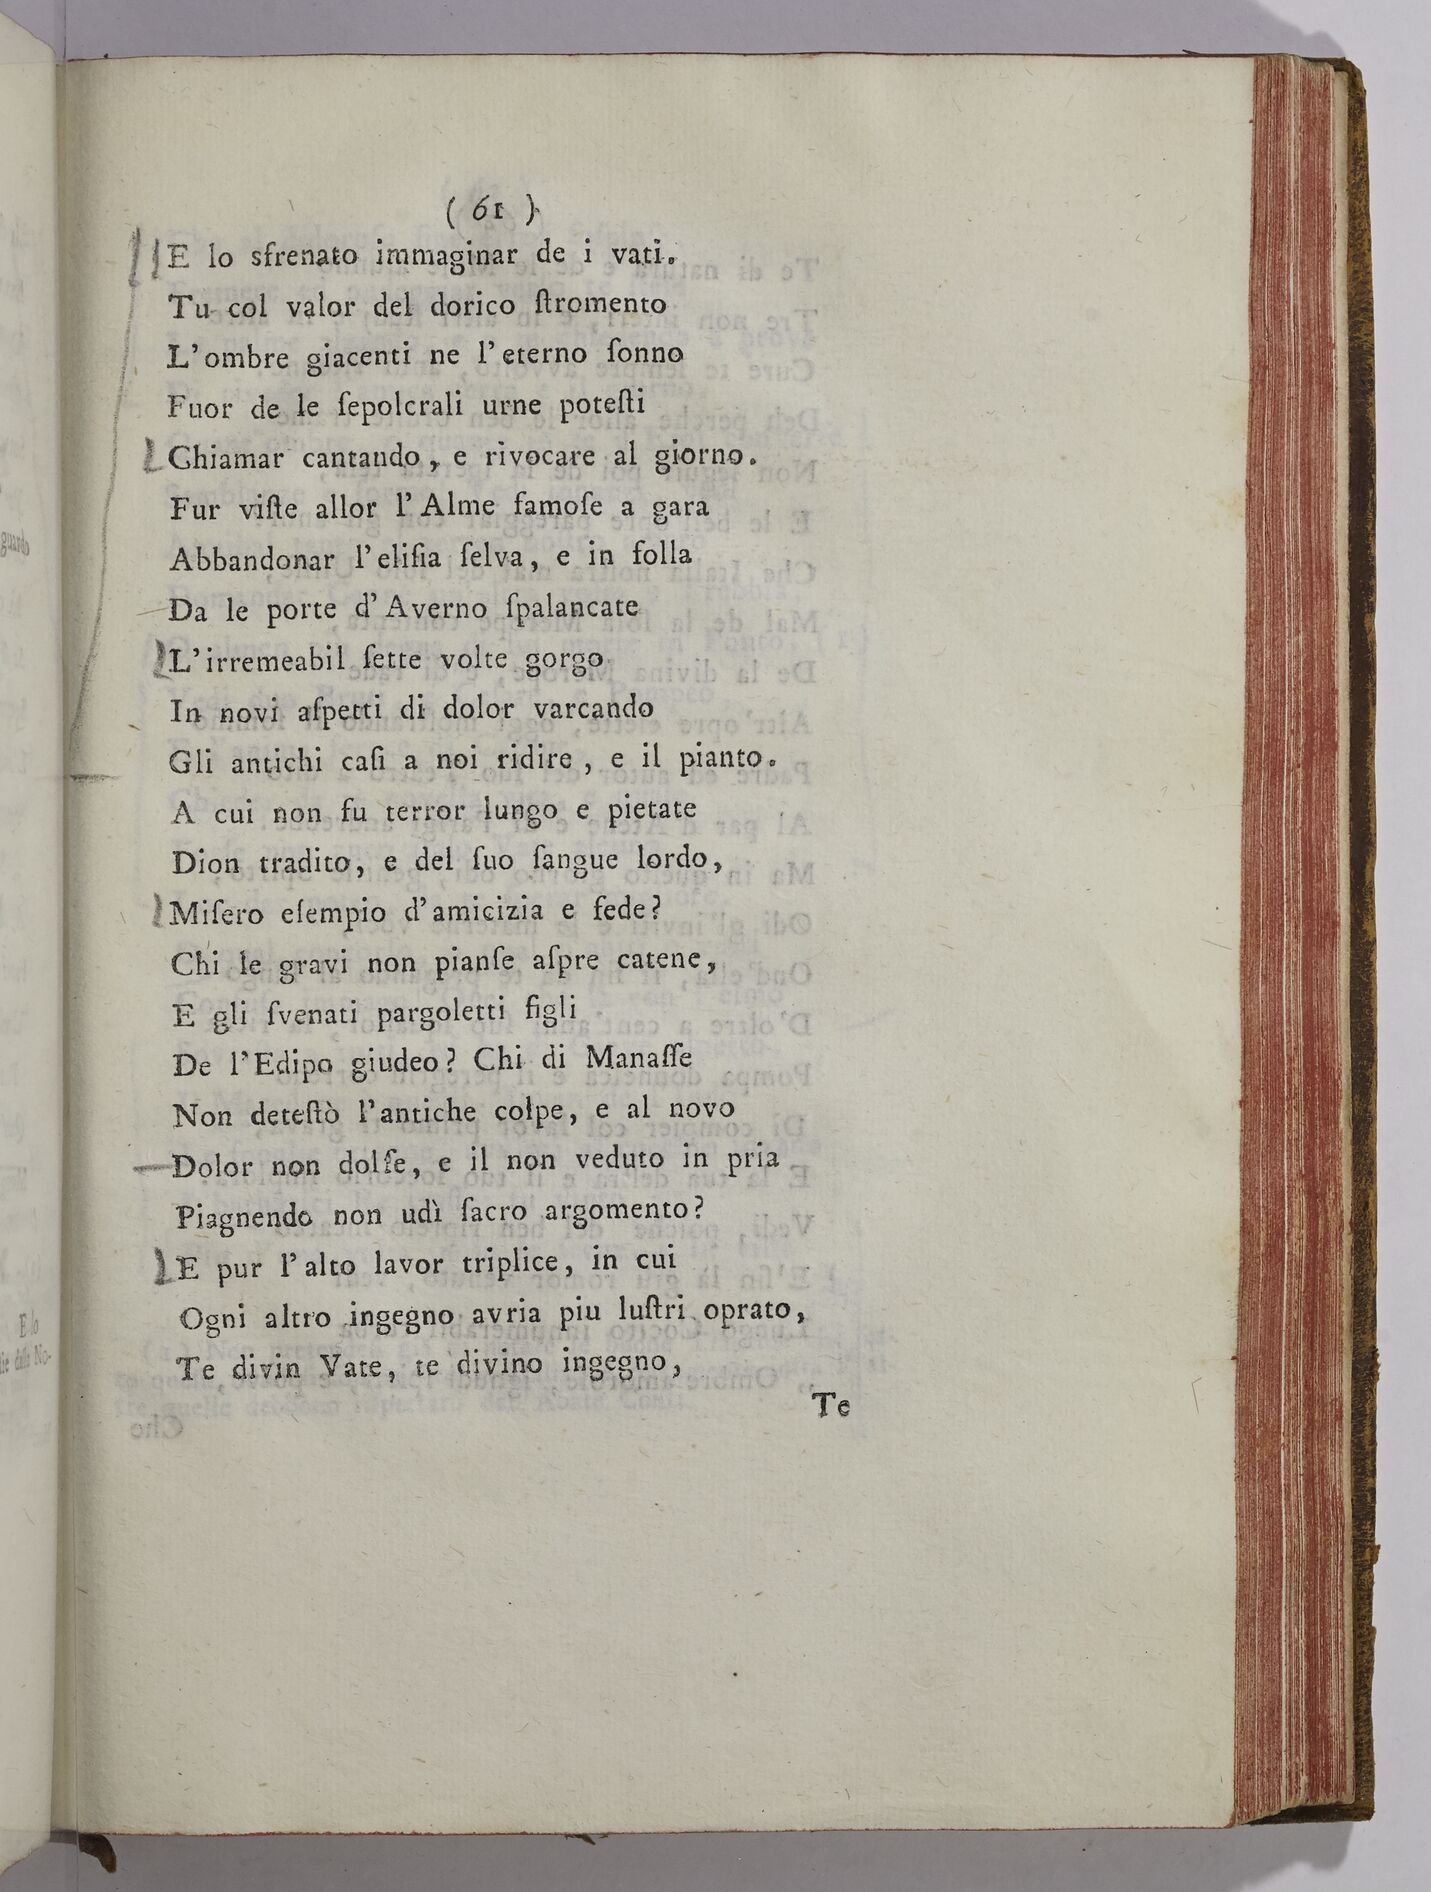 ( 61 )
E lo sfrenato immaginar de i vati.
Tu col valor del dorico ſtromento
L'ombre giacenti ne l'eterno ſonno
Fuor de le ſepolcrali urne poteſti
Chiamar cantando, e rivocare al giorno.
Fur viſte allor l'Alme famoſe a gara
Abbandonar l'eliſia ſelva, e in folla
Da le porte d'Averno ſpalancate
L'irremeabil ſette volte gorgo
In novi aſpetti di dolor varcando
Gli antichi caſi a noi ridire, e il pianto.
A cui non fu terror lungo e pietate
Dion tradito, e del ſuo ſangue lordo,
Miſero eſempio d'amicizia e fede?
Chi le gravi non pianſe aſpre catene,
E gli ſvenati pargoletti figli
De l'Edipo giudeo? Chi di Manaſſe
Non deteſtò l'antiche colpe, e al novo
Dolor non dolſe, e il non veduto in pria
Piagnendo non udì ſacro argomento?
E pur l'alto lavor triplice, in cui
Ogni altro ingegno avria piu luſtri oprato,
Te divin Vate, te divino ingegno,
Te